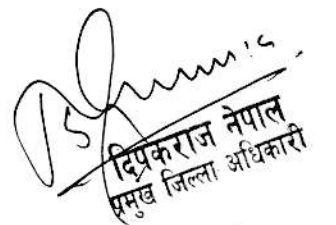 दिपकराज नेपाल
प्रमुख जिल्ला अधिकारी